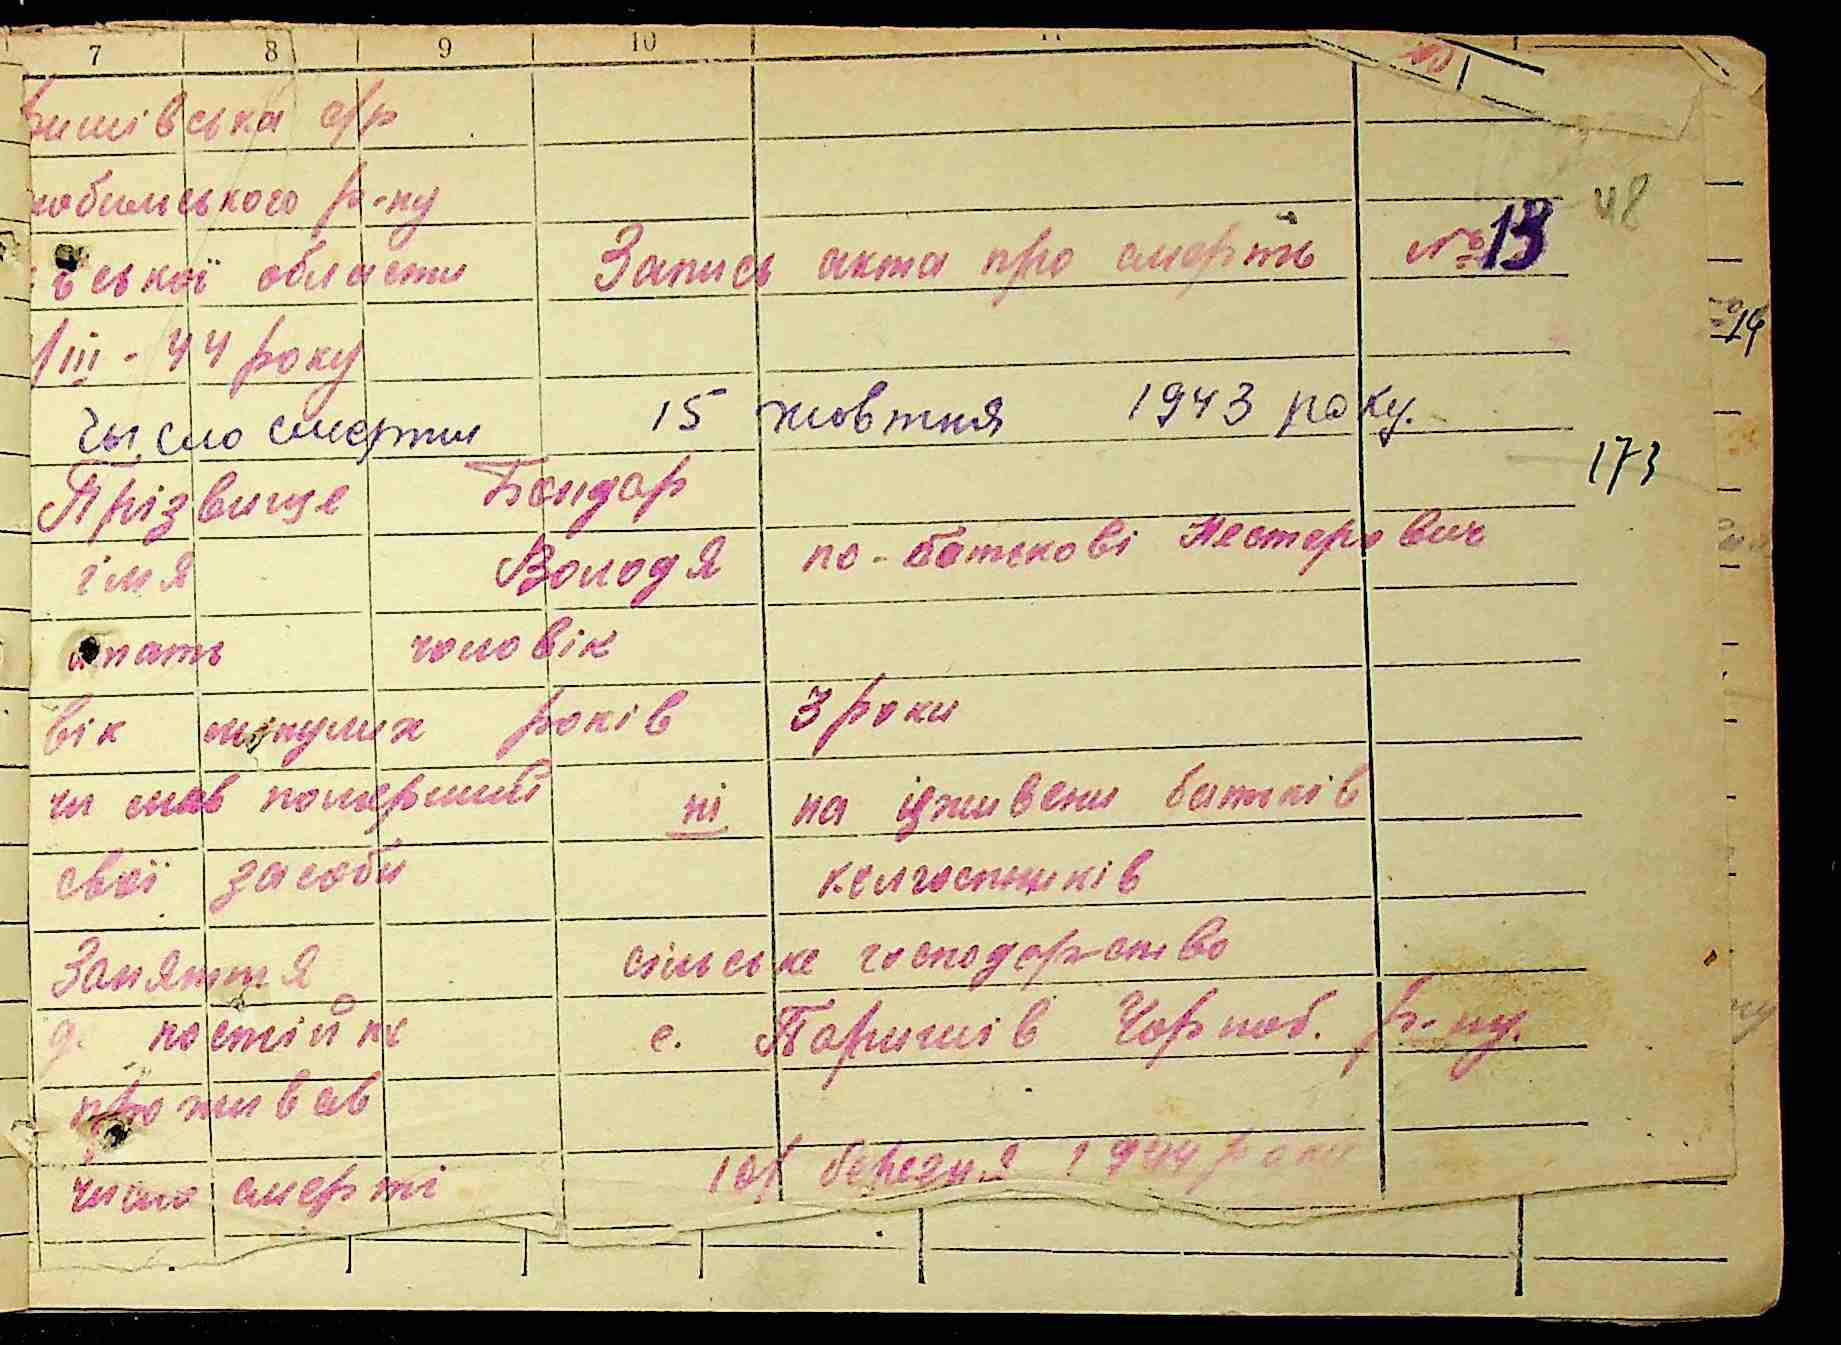 7 8 9 10
ишівська с/р
нобильського р-ну
ської области
Запись акта про смерть № 13
48
/III - 44 року
94
Число смерти 15 жовтня 1943 року.
173
Прізвище Бондар
імя Володя по-батькові Нестерович
стать чоловік
вік минулих років 3 роки
чи мав померший ні на іждивені батьків
свої засоби колгоспників
Заняття сільське господарство
де постійно с. Паришів Чорноб. р-ну.
проживав
число смерті березня 1944 року